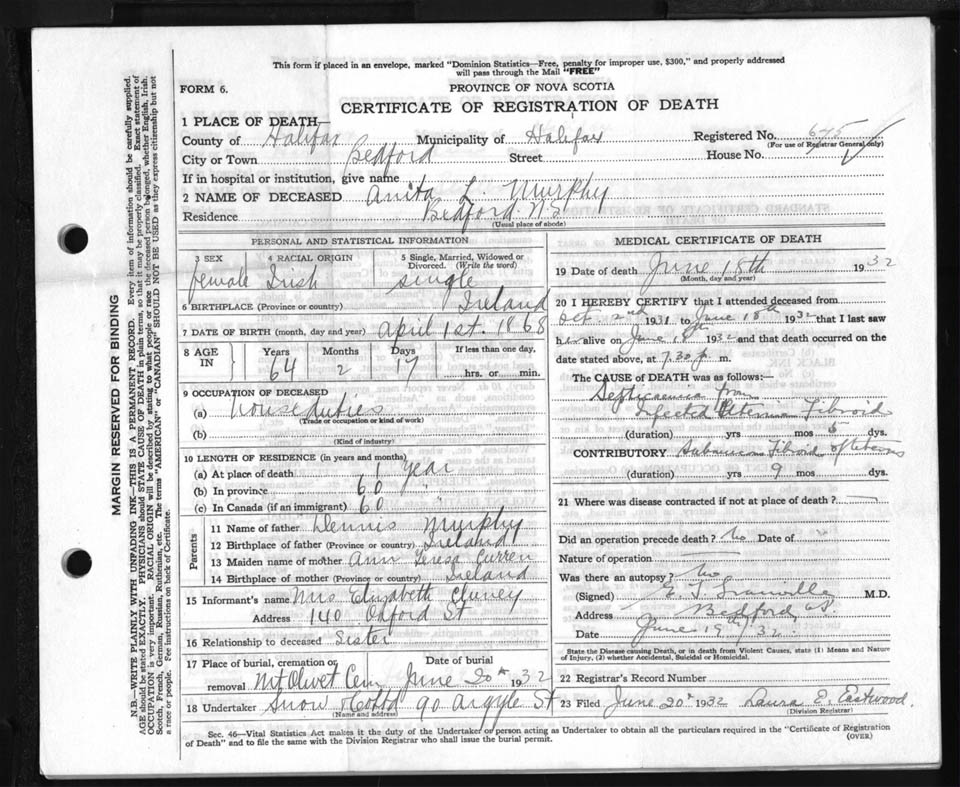 This form if placed in an envelope, marked "Dominion Statistics—Free, penalty for improper use, $300," and properly addressed
will pass through the Mail "FREE"
FORM 6.
PROVINCE OF NOVA SCOTIA
CERTIFICATE OF REGISTRATION OF DEATH
1 PLACE OF DEATH,—
County of Halifax Municipality of Halifax Registered No. 645
(For use of Registrar General only)
City or Town Bedford Street House No.
If in hospital or institution, give name
2 NAME OF DECEASED Anita L. Murphy
Residence Bedford N.S.
(Usual place of abode)
PERSONAL AND STATISTICAL INFORMATION
3 SEX 4 RACIAL ORIGIN 5 Single, Married, Widowed or Divorced. (Write the word)
female Irish single
6 BIRTHPLACE (Province or country) Ireland
7 DATE OF BIRTH (month, day and year) April 1st. 1868
8 AGE IN Years Months Days If less than one day,
64 2 17 hrs. or min.
9 OCCUPATION OF DECEASED
(a) House duties
(Trade or occupation or kind of work)
(b)
(Kind of industry)
10 LENGTH OF RESIDENCE (in years and months)
(a) At place of death 1 year
(b) In province 60
(c) In Canada (if an immigrant) 60
Parents
11 Name of father Dennis Murphy
12 Birthplace of father (Province or country) Ireland
13 Maiden name of mother Ann Teresa Curren
14 Birthplace of mother (Province or country) Ireland
15 Informant's name Mrs Elizabeth
Address 140 Oxford St
16 Relationship to deceased Sister
17 Place of burial, cremation or removal Mt Olivet Cem Date of burial June 20th 1932
18 Undertaker Snow & Co Ltd 90 Argyle St
(Name and address)
MEDICAL CERTIFICATE OF DEATH
19 Date of death June 18th 1932
(Month, day and year)
20 I HEREBY CERTIFY that I attended deceased from
Oct. 2nd 1931 to June 18th 1932 that I last saw
her alive on June 18 1932 and that death occurred on the
date stated above, at 7.30 p. m.
The CAUSE OF DEATH was as follows:—
Septicaemia from
Infected Uterine Fibroid
(duration) yrs mos 5 dys.
CONTRIBUTORY Fibroid of Uterus
(duration) yrs 9 mos dys.
21 Where was disease contracted if not at place of death?
Did an operation precede death? No Date of
Nature of operation
Was there an autopsy? No
(Signed) E. J. Granville M.D.
Address Bedford
Date June 19th/32.
State the Disease causing Death, or in death from Violent Causes, state (1) Means and Nature
of Injury, (2) whether Accidental, Suicidal or Homicidal.
22 Registrar's Record Number
23 Filed June 20th 1932 Laura E. Eastwood.
(Division Registrar)
Sec. 46—Vital Statistics Act makes it the duty of the Undertaker or person acting as Undertaker to obtain all the particulars required in the "Certificate of Registration
of Death" and to file the same with the Division Registrar who shall issue the burial permit.
(OVER)
MARGIN RESERVED FOR BINDING
N.B.—WRITE PLAINLY WITH UNFADING INK—THIS IS A PERMANENT RECORD. Every item of information should be carefully supplied.
AGE should be stated EXACTLY. PHYSICIANS should STATE CAUSE OF DEATH in plain terms, so that it may be properly classified. Exact statement of
OCCUPATION is very important. RACIAL ORIGIN will be described by stating to what people or race the deceased person belonged, whether English, Irish,
Scotch, French, German, Russian, Ruthenian, etc. The terms "AMERICAN" or "CANADIAN" SHOULD NOT BE USED as they express citizenship but not
a race or people. See instructions on back of Certificate.